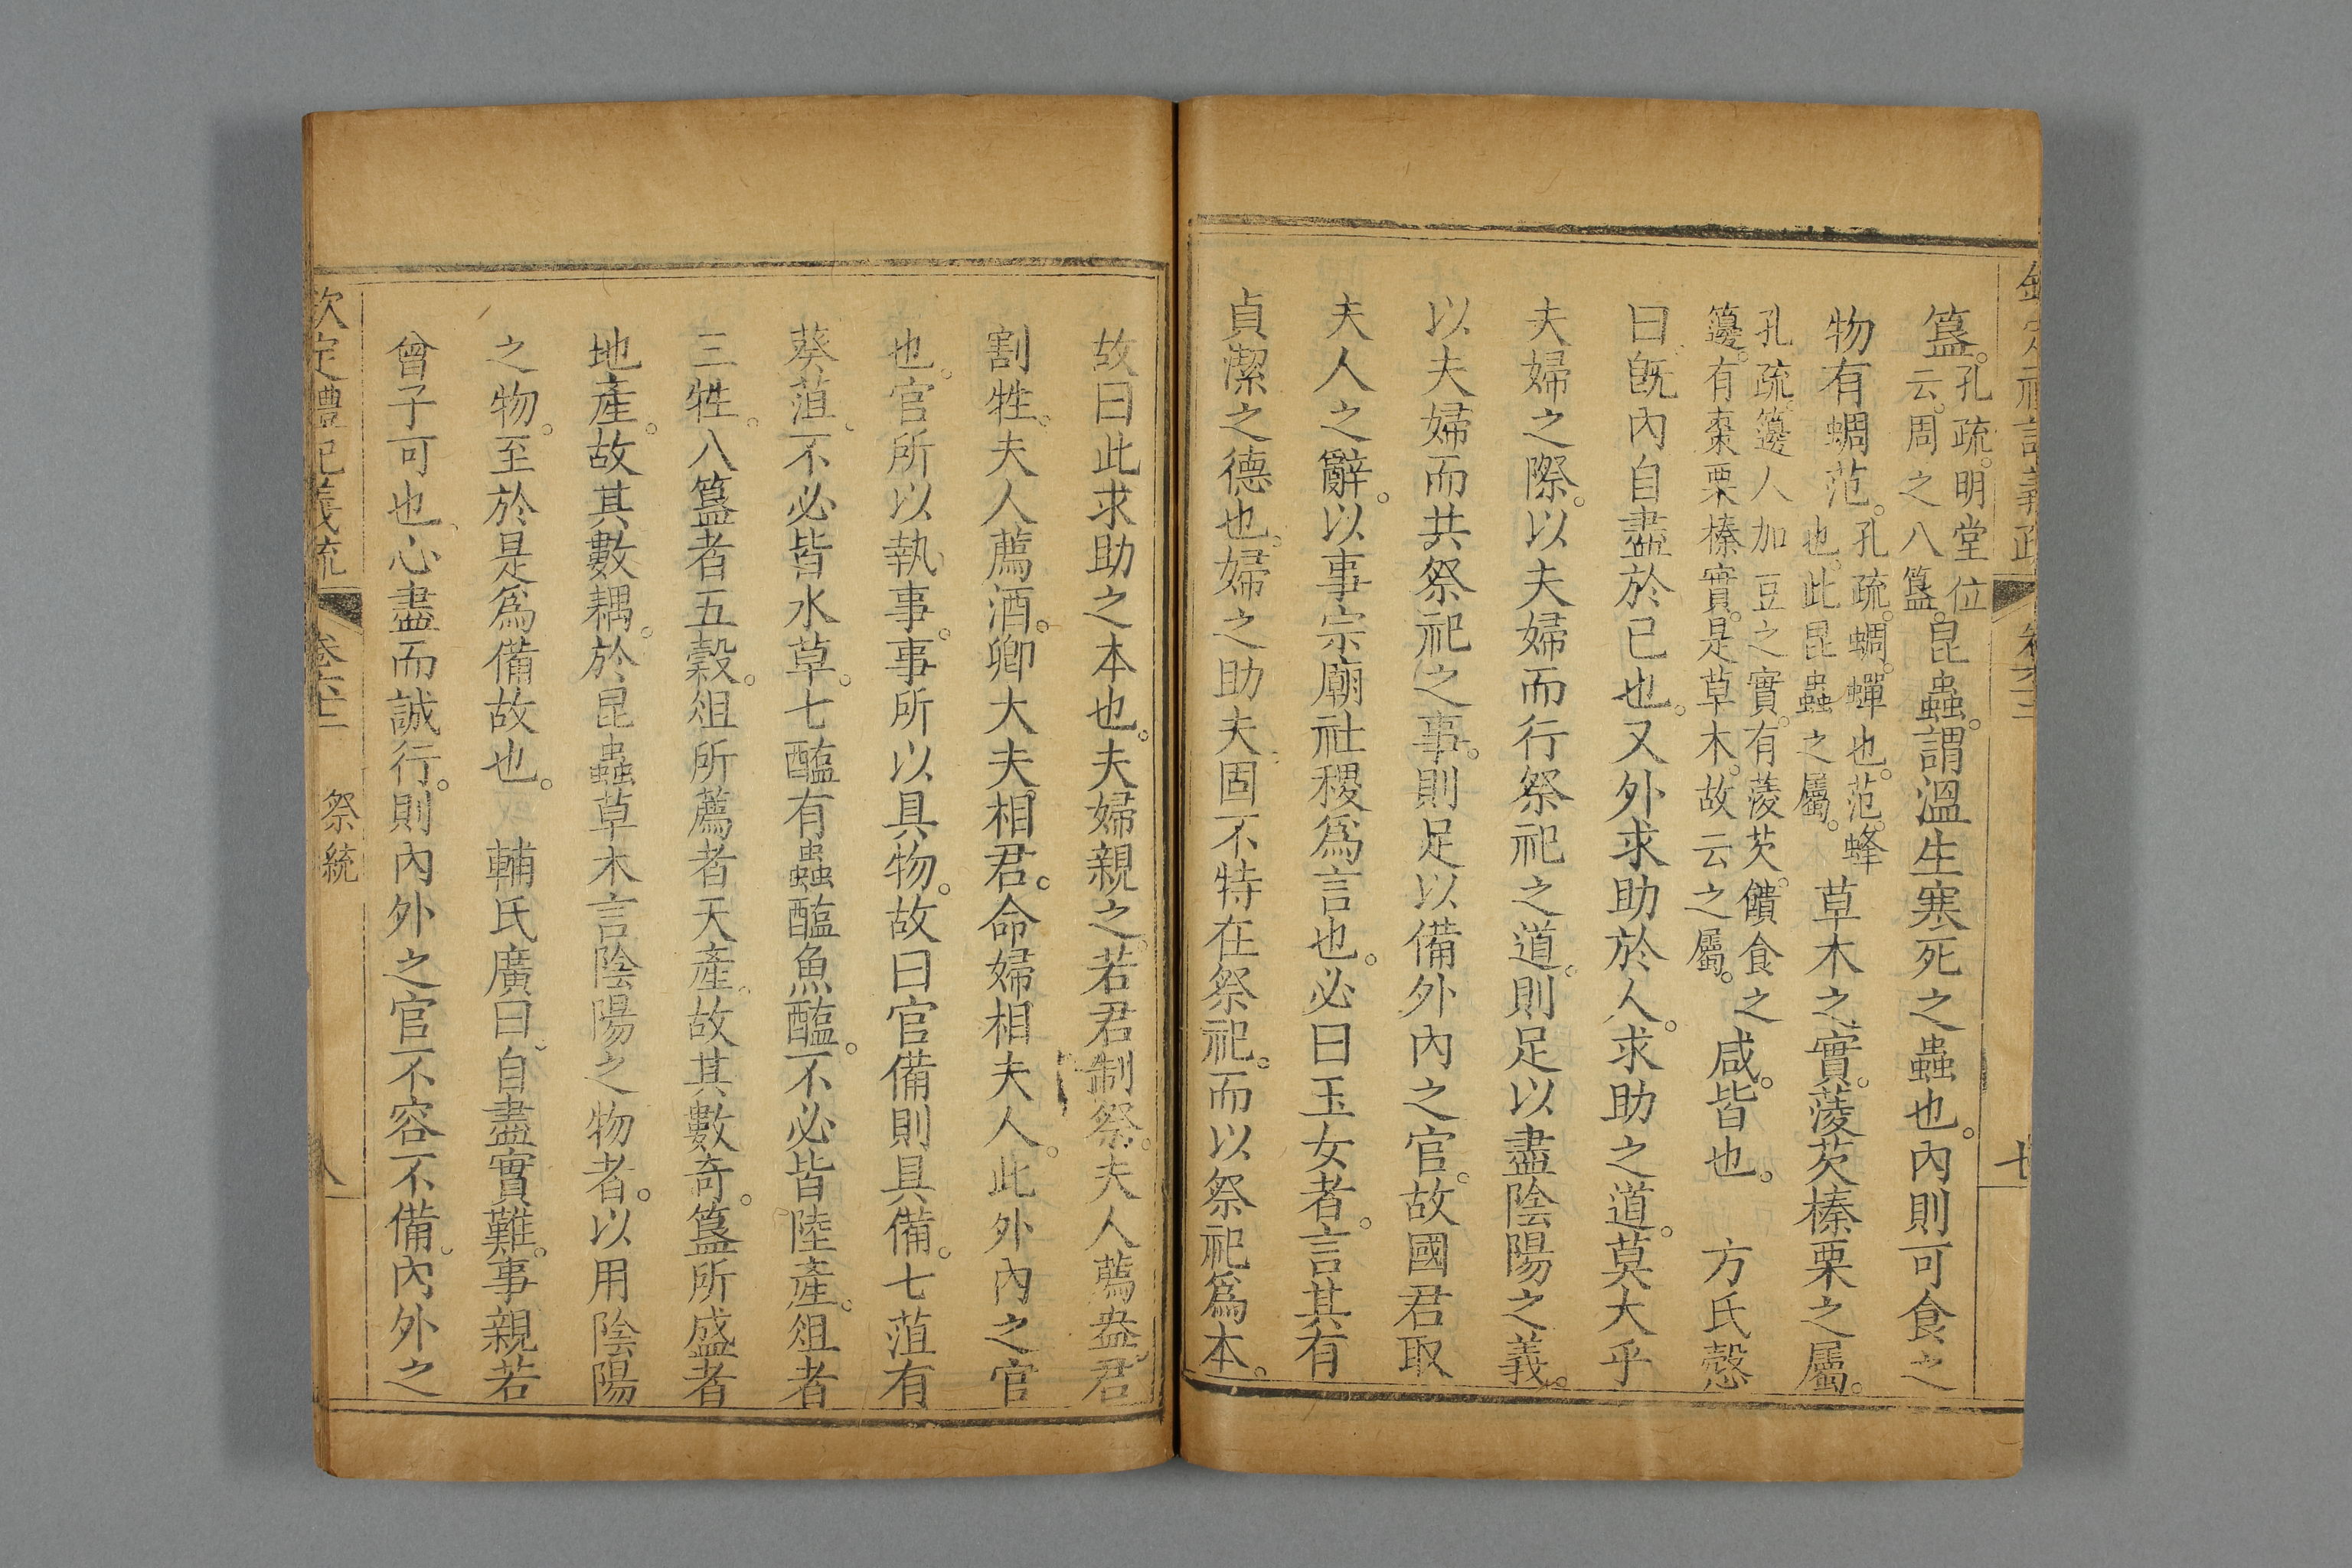 簋。孔疏。明堂位云。周之八簋。昆蟲。謂溫生寒死之蟲也。內則可食之
物有蜩范。孔疏。蜩。蟬也。范。蜂也。此昆蟲之屬。草木之實。蔆芡榛栗之屬。
孔疏。籩人加豆之實。有蔆芡。饋食之籩。有棗栗榛實。是草木。故云之屬。咸。皆也。 方氏慤
曰既內自盡於已也。又外求助於人。求助之道。莫大乎
夫婦之際。以夫婦而行祭祀之道。則足以盡陰陽之義。
以夫婦而共祭祀之事。則足以備外內之官。故國君取
夫人之辭。以事宗廟社稷爲言也。必曰玉女者。言其有
貞潔之德也。婦之助夫。固不特在祭祀。而以祭祀爲本。
故曰此求助之本也。夫婦親之。若君制祭。夫人薦盎。君
割牲。夫人薦酒。卿大夫相君。命婦相夫人。此外內之官
也。官所以執事。事所以具物。故曰官備則具備。七菹有
葵菹。不必皆水草。七醢有蟲醢魚醢。不必皆陸產。俎者
三牲。八簋者五穀。俎所薦者天產。故其數奇。簋所盛者
地產。故其數耦。於昆蟲草木言陰陽之物者。以用陰陽
之物。至於是爲備故也。 輔氏廣曰。自盡實難。事親若
曾子可也。心盡而誠行。則內外之官不容不備。內外之
欽定禮記義疏 卷六十二 祭統 八